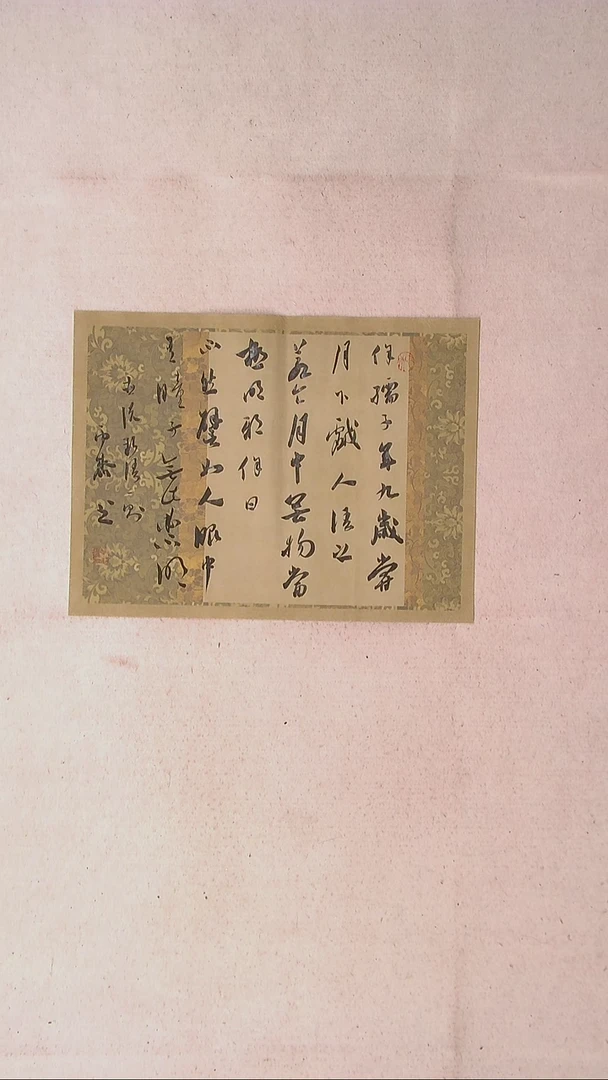 徐孺子年九歲嘗
月下戲人語之
若令月中無物當
極明邪徐曰
不然譬如人眼中
有瞳子無此必不明
世說新語一則